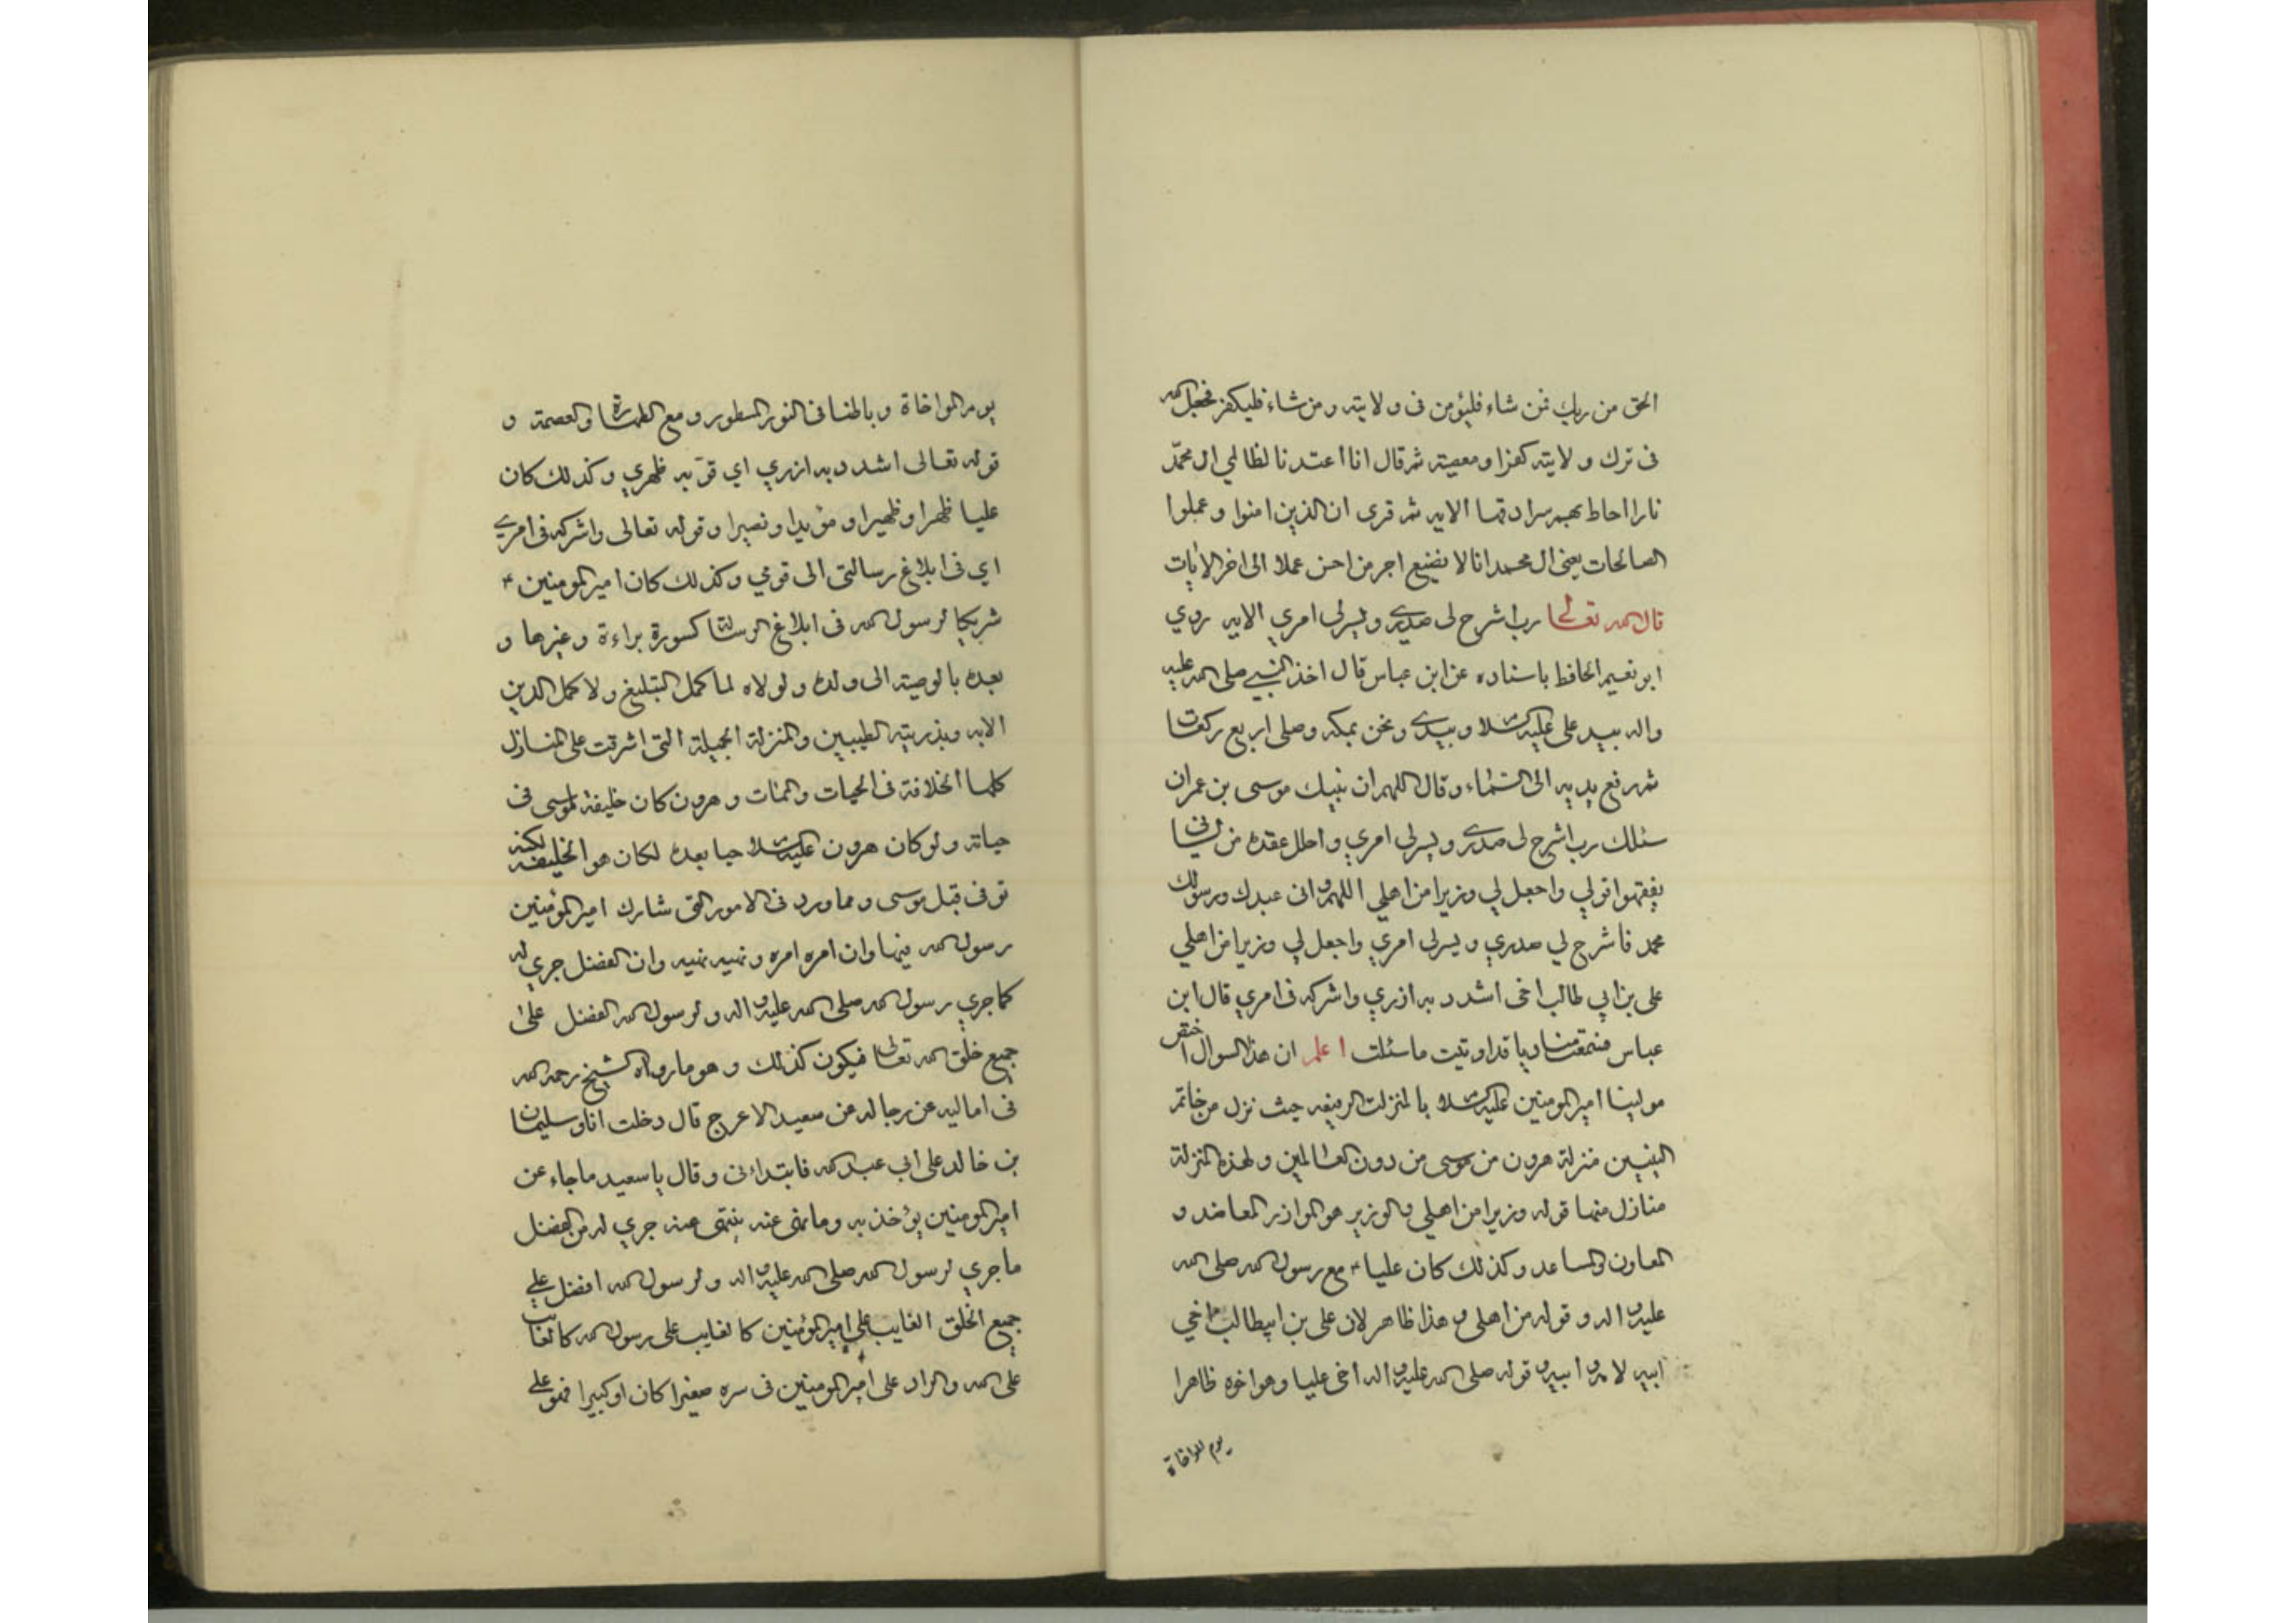 الحق من ربك فمن شاء فليؤمن فى ولايته ومن شاء فليكفر فجعل الله
فى ترك ولايته كفرا ومعصية ثم قال انا اعتدنا لظالمي ال محمّد
نارا احاط بهم سرادقها الايه ثم قرى ان الذين امنوا وعملوا
الصالحات يعنى ال محمد انا لا نضيع اجر من احسن عملا الى اخر الايات
قال الله تعالى رب اشرح لى صدرى ويسر لى امري الايه روي
ابو نعيم الحافظ باسناده عن ابن عباس قال اخذ النبي صلى الله عليه
واله بيد على عليه السلام وبيدى ونحن بمكه وصلى اربع ركعات
ثم رفع يديه الى السماء وقال اللهم ان نبيك موسى بن عمران
سئلك رب اشرح لى صدرى ويسر لى امري واحلل عقدة من لسانى
يفقهوا قولي واجعل لي وزيرا من اهلي اللهم وانى عبدك ورسولك
محمد فاشرح لي صدري ويسر لى امري واجعل لي وزيرا من اهلي
على بن ابي طالب اخى اشدد به ازري واشركه فى امري قال ابن
عباس فسمعت مناديا قد اوتيت ما سئلت اعلم ان هذا السوال اختص
مولينا امير المومنين عليه السلام بالمنزلت الرفيعه حيث نزل من خاتم
النبيين منزلة هرون من موسى من دون العالمين ولهذه المنزلة
منازل منها قوله وزيرا من اهلي والوزير هو الموازر المعاضد و
المعاون والمساعد وكذلك كان عليا ٤ مع رسول الله صلى الله
عليه واله وقوله من اهلى وهذا ظاهر لان على بن ابيطالب ٤ اخي
ابيه لابيه وامه وقوله صلى الله عليه واله اخى عليا وهو اخوه ظاهرا
يوم المواخاة
يوم المواخاة وباطنا فى النور المسطور ومع الطهارة والعصمة و
قوله تعالى اشدد به ازري اي قوّ به ظهري وكذلك كان
عليا ظهرا وظهيرا ومؤيدا ونصيرا وقوله تعالى واشركه فى امرى
اي فى ابلاغ رسالتى الى قومي وكذلك كان امير المومنين ٤
شريكا لرسول الله فى ابلاغ الرسالة كسورة براءة وغيرها و
بعده بالوصية الى ولده ولولاه لما كمل التبليغ ولا كمل الدين
الا به وبذريته الطيبين والمنزلة الجميلة التى اشرقت على المنازل
كلها الخلافة فى الحيات والممات وهرون كان خليفة لموسى فى
حياته ولو كان هرون عليه السلام حيا بعده لكان هو الخليفه لكنه
توفى قبل موسى ومما ورد فى الامور التى شارك امير المؤمنين
رسول الله فيها وان امره امره ونهيه نهيه وان الفضل جري له
كما جري رسول الله صلى الله عليه واله ولرسول الله الفضل على
جميع خلق الله تعالى فيكون كذلك وهو ما رواه الشيخ رحمه الله
فى اماليه عن رجاله عن سعيد الاعرج قال دخلت انا وسليمان
بن خالد على ابي عبد الله فابتدائنى وقال يا سعيد ما جاء عن
امير المومنين يؤخذ به وما نهى عنه ينتهى عنه جري له من الفضل
ما جري لرسول الله صلى الله عليه واله ولرسول الله افضل على
جميع الخلق العايب على امير المؤمنين كالعايب على رسول الله كالعايب
على الله والراد على امير المومنين فى سره صغيرا كان او كبيرا فهو على